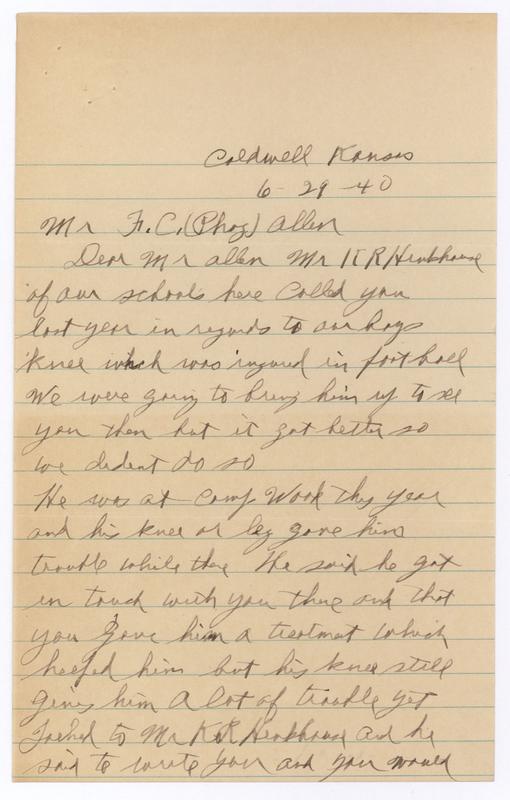 Caldwell Kansas
6-29-40
Mr F.C, (Phog) Allen
Dear Mr Allen Mr KR Henbhouse
of our schools here Called you
last year in regards to our boys
knee which was injured in foot ball
We were going to bring him up to see
you then but it got better so
we dident do so
He was at Camp Wook this year
and his knee or leg gave him
trouble while there He said he got
in touch with you there and that
you gave him a treatment which
helped him but his knee still
gives him A lot of trouble yet
to Mr KR Henbhouse and he
said to write you and you would